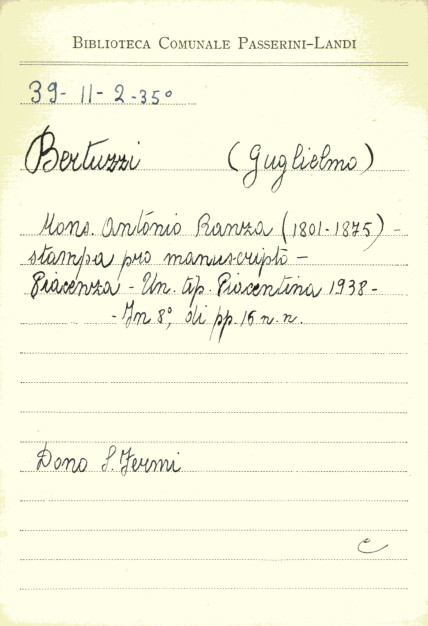 BIBLIOTECA COMUNALE PASSERINI-LANDI
39- 11- 2-35°
Bertuzzi (Guglielmo)
Mons. Antonio Ranza (1801-1875) -
stampa pro manuscripto -
Piacenza - Un. tip. Piacentina 1938 -
- In 8°, di pp. 16 n. n.
Dono S. Fermi
c